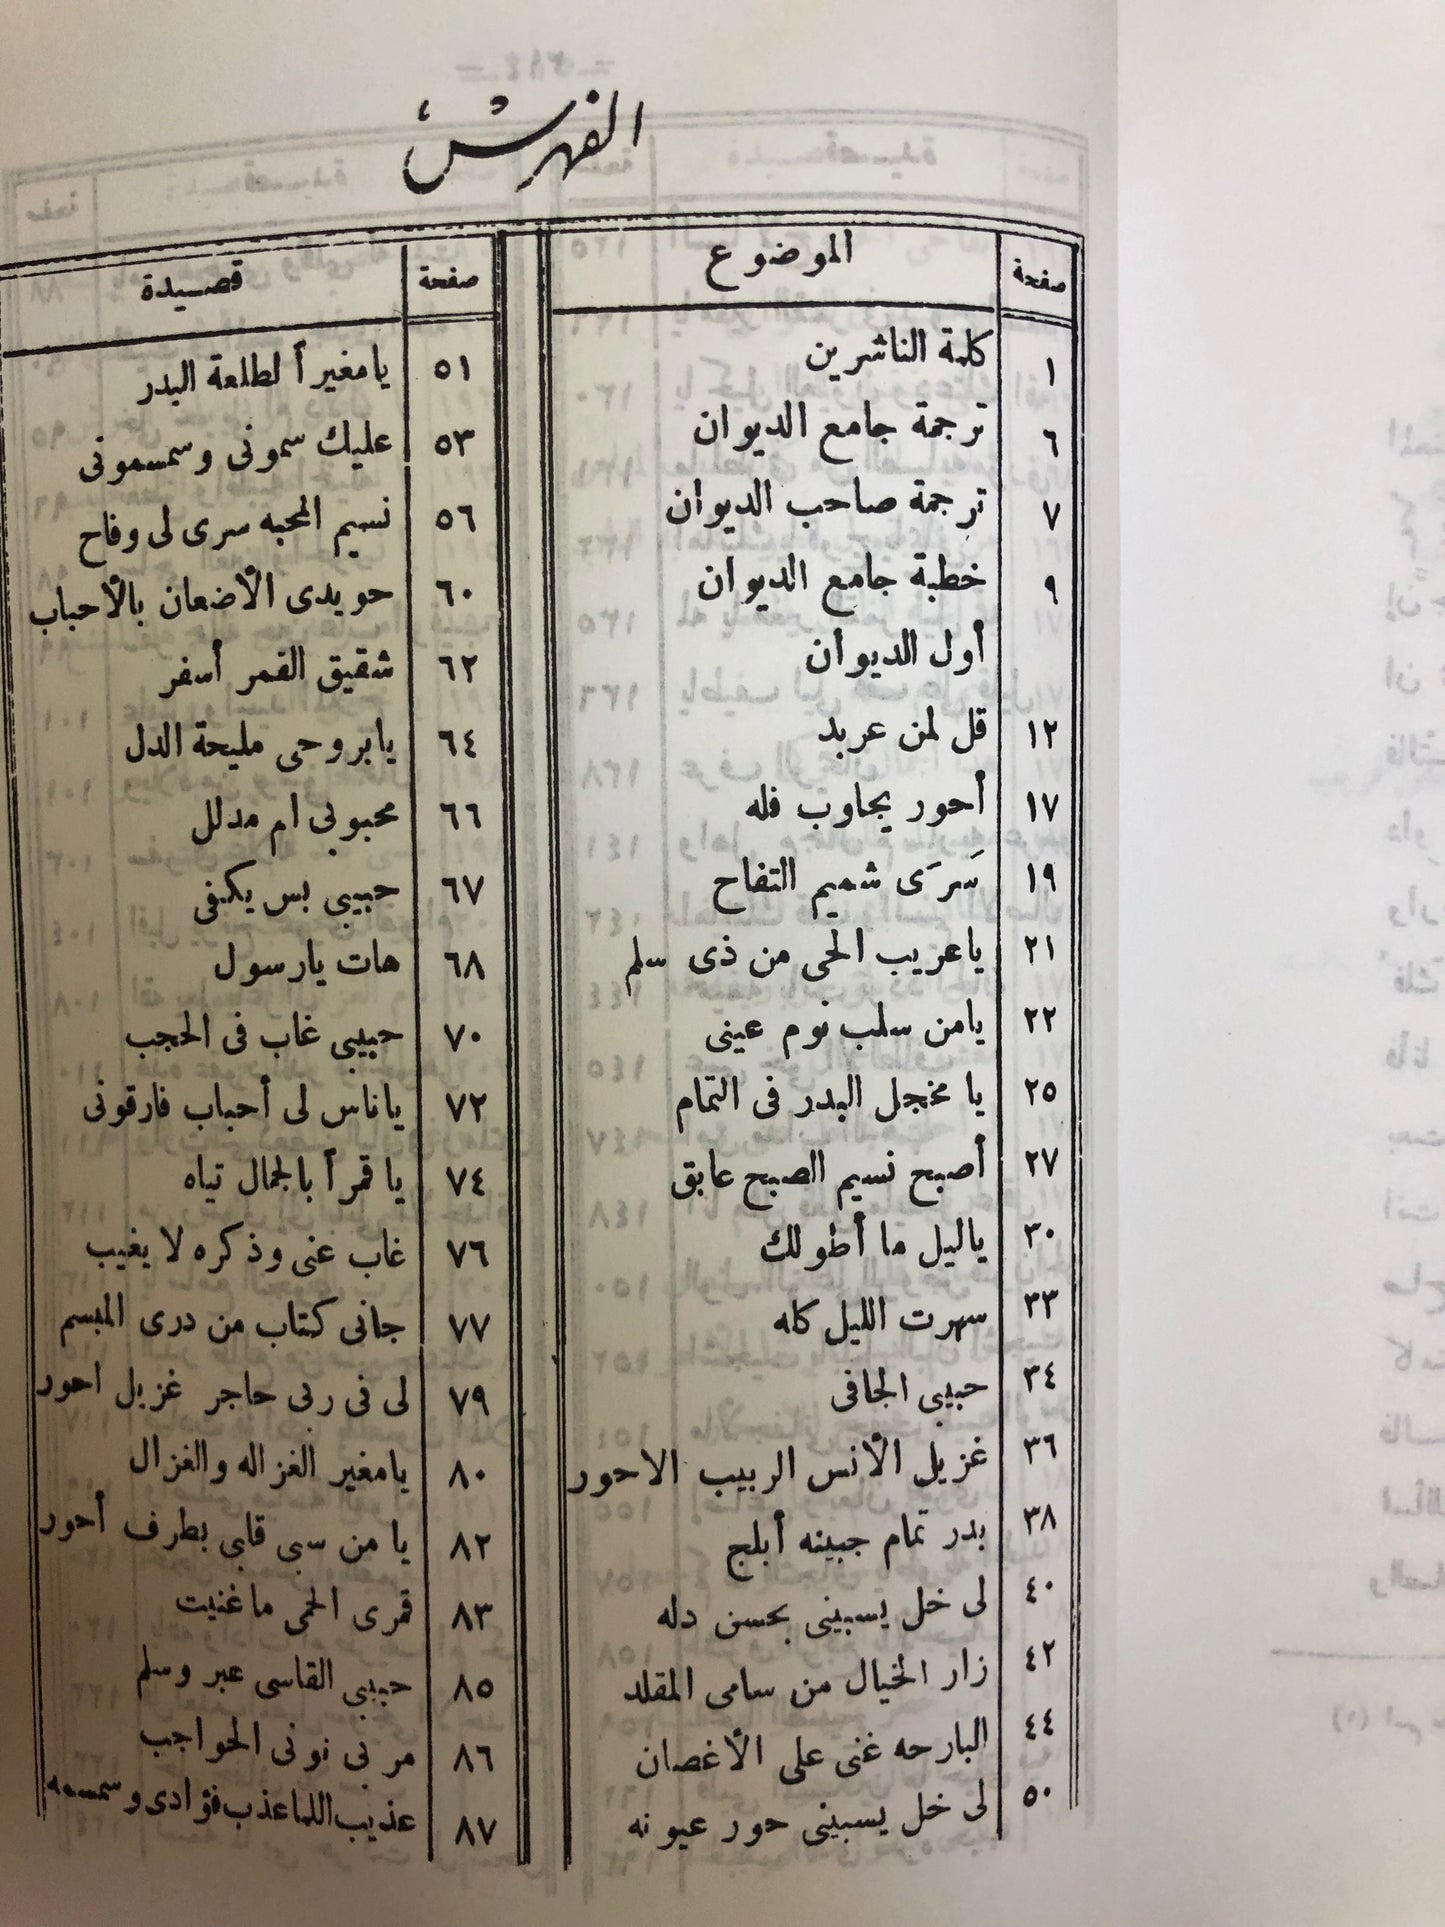 الفهرس
صفحة الموضوع
١ كلمة الناشرين
٦ ترجمة جامع الديوان
٧ ترجمة صاحب الديوان
٩ خطبة جامع الديوان
أول الديوان
١٢ قل لمن عربد
١٧ أحور يجاوب فله
١٩ سَرَى شميم التفاح
٢١ ياعريب الحى من ذى سلم
٢٢ يامن سلب نوم عينى
٢٥ يا مخجل البدر فى التمام
٢٧ أصبح نسيم الصبح عابق
٣٠ ياليل ما أطولك
٣٣ سهرت الليل كله
٣٤ حبيبى الجافى
٣٦ غزيل الأنس الربيب الاحور
٣٨ بدر تمام جبينه أبلج
٤٠ لى خل يسبينى بحسن دله
٤٢ زار الخيال من سامى المقلد
٤٤ البارحه غنى على الأغصان
٥٠ لى خل يسبينى حور عيونه
صفحة قصيدة
٥١ يامغيراً لطلعة البدر
٥٣ عليك سمونى وسمسمونى
٥٦ نسيم المحبه سرى لى وفاح
٦٠ حويدى الأضعان بالأحباب
٦٢ شقيق القمر أسفر
٦٤ يابروحى مليحة الدل
٦٦ محبوبى ام مدلل
٦٧ حبيبى بس يكفى
٦٨ هات يارسول
٧٠ حبيبى غاب فى الحجب
٧٢ ياناس لى أحباب فارقونى
٧٤ يا قمراً بالجمال تياه
٧٦ غاب عنى وذكره لا يغيب
٧٧ جانى كتاب من درى المبسم
٧٩ لى فى ربى حاجر غزيل احور
٨٠ يامغير الغزاله والغزال
٨٢ يا من سبى قلبى بطرف أحور
٨٣ قمرى الحمى ماغنيت
٨٥ حبيبى القاسى عبر وسلم
٨٦ مر بى نونى الحواجب
٨٧ عذيب اللما عذب فؤادى وسمسمه